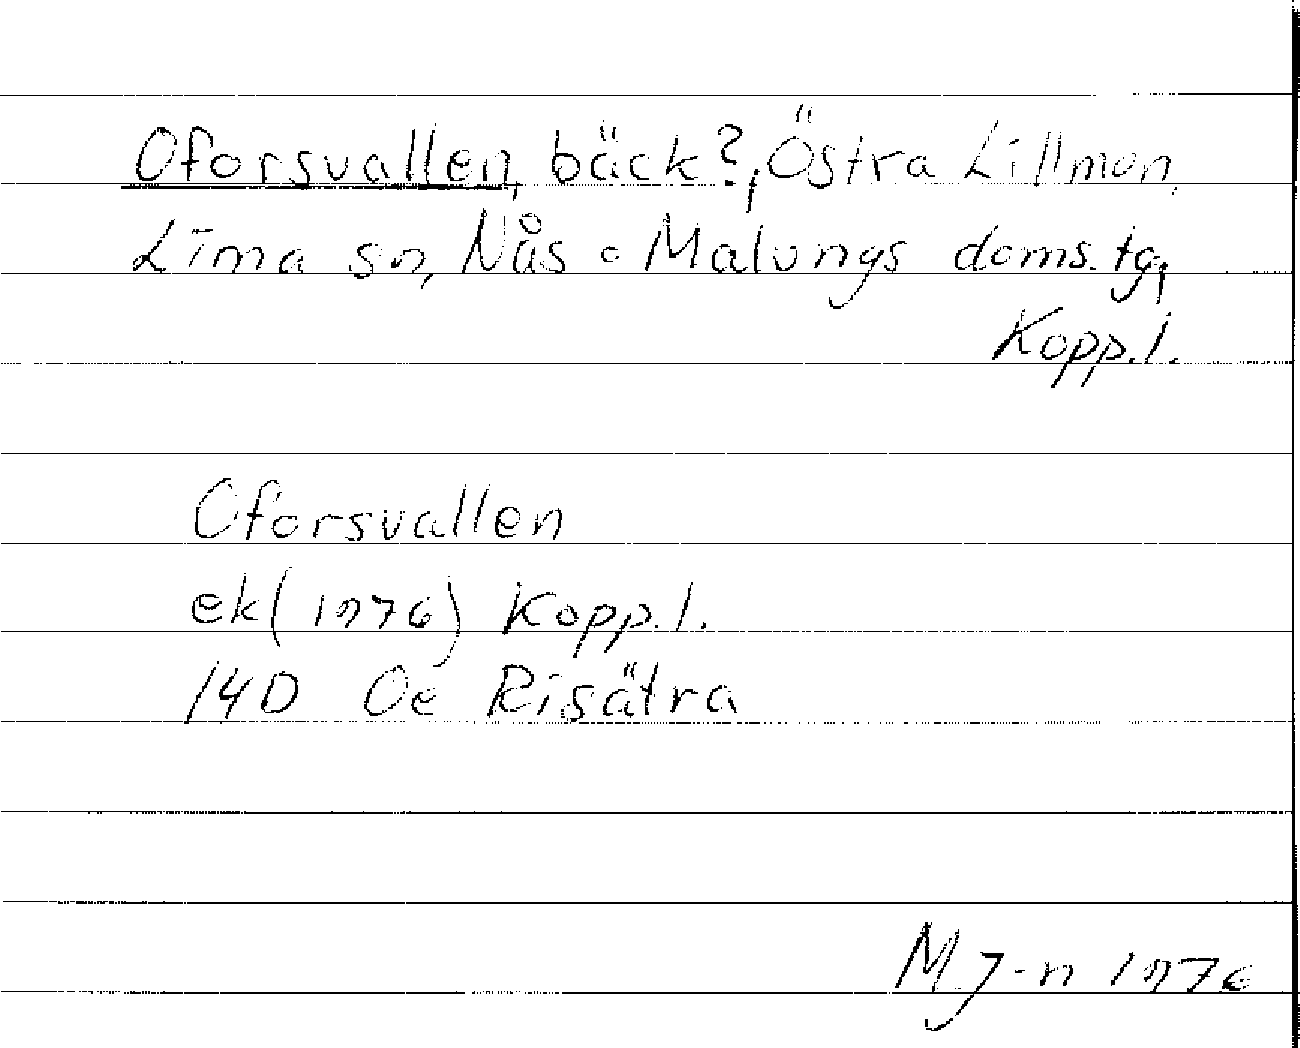 Oforsvallen, bäck?, Östra Lillmon,
Lima sn, Nås o Malungs doms.tg,
Kopp.l.
Oforsvallen
ek(1976) Kopp.l.
14D Oe Risätra
M J-n 1976